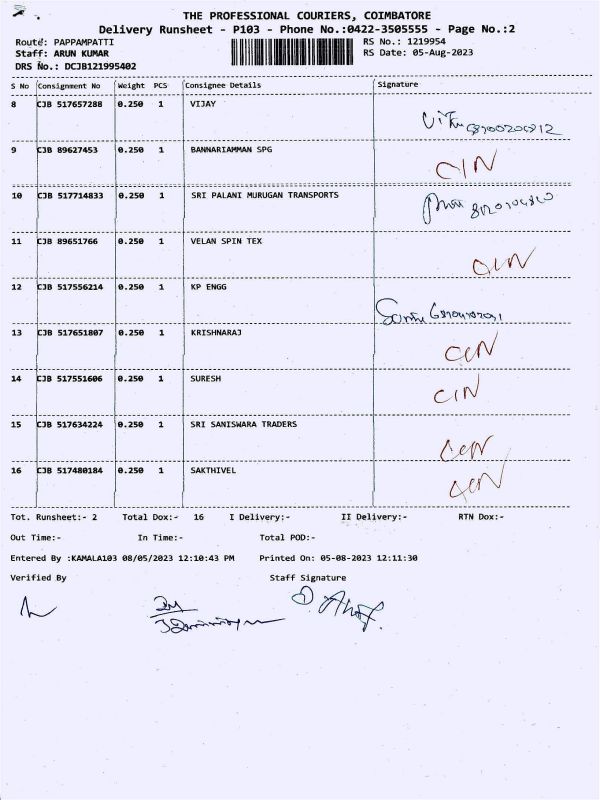 THE PROFESSIONAL COURIERS, COIMBATORE
Delivery Runsheet - P103 - Phone No.:0422-3505555 - Page No.:2
Route: PAPPAMPATTI RS No.: 1219954
Staff: ARUN KUMAR RS Date: 05-Aug-2023
DRS No.: DCJB121995402
S No Consignment No Weight PCS Consignee Details Signature
8 CJB 517657288 0.250 1 VIJAY
9 CJB 89627453 0.250 1 BANNARIAMMAN SPG CIN
10 CJB 517714833 0.250 1 SRI PALANI MURUGAN TRANSPORTS
11 CJB 89651766 0.250 1 VELAN SPIN TEX CIN
12 CJB 517556214 0.250 1 KP ENGG
13 CJB 517651807 0.250 1 KRISHNARAJ
14 CJB 517551606 0.250 1 SURESH CIN
15 CJB 517634224 0.250 1 SRI SANISWARA TRADERS
16 CJB 517480184 0.250 1 SAKTHIVEL
Tot. Runsheet:- 2 Total Dox:- 16 I Delivery:- II Delivery:- RTN Dox:-
Out Time:- In Time:- Total POD:-
Entered By :KAMALA103 08/05/2023 12:10:43 PM Printed On: 05-08-2023 12:11:30
Verified By Staff Signature